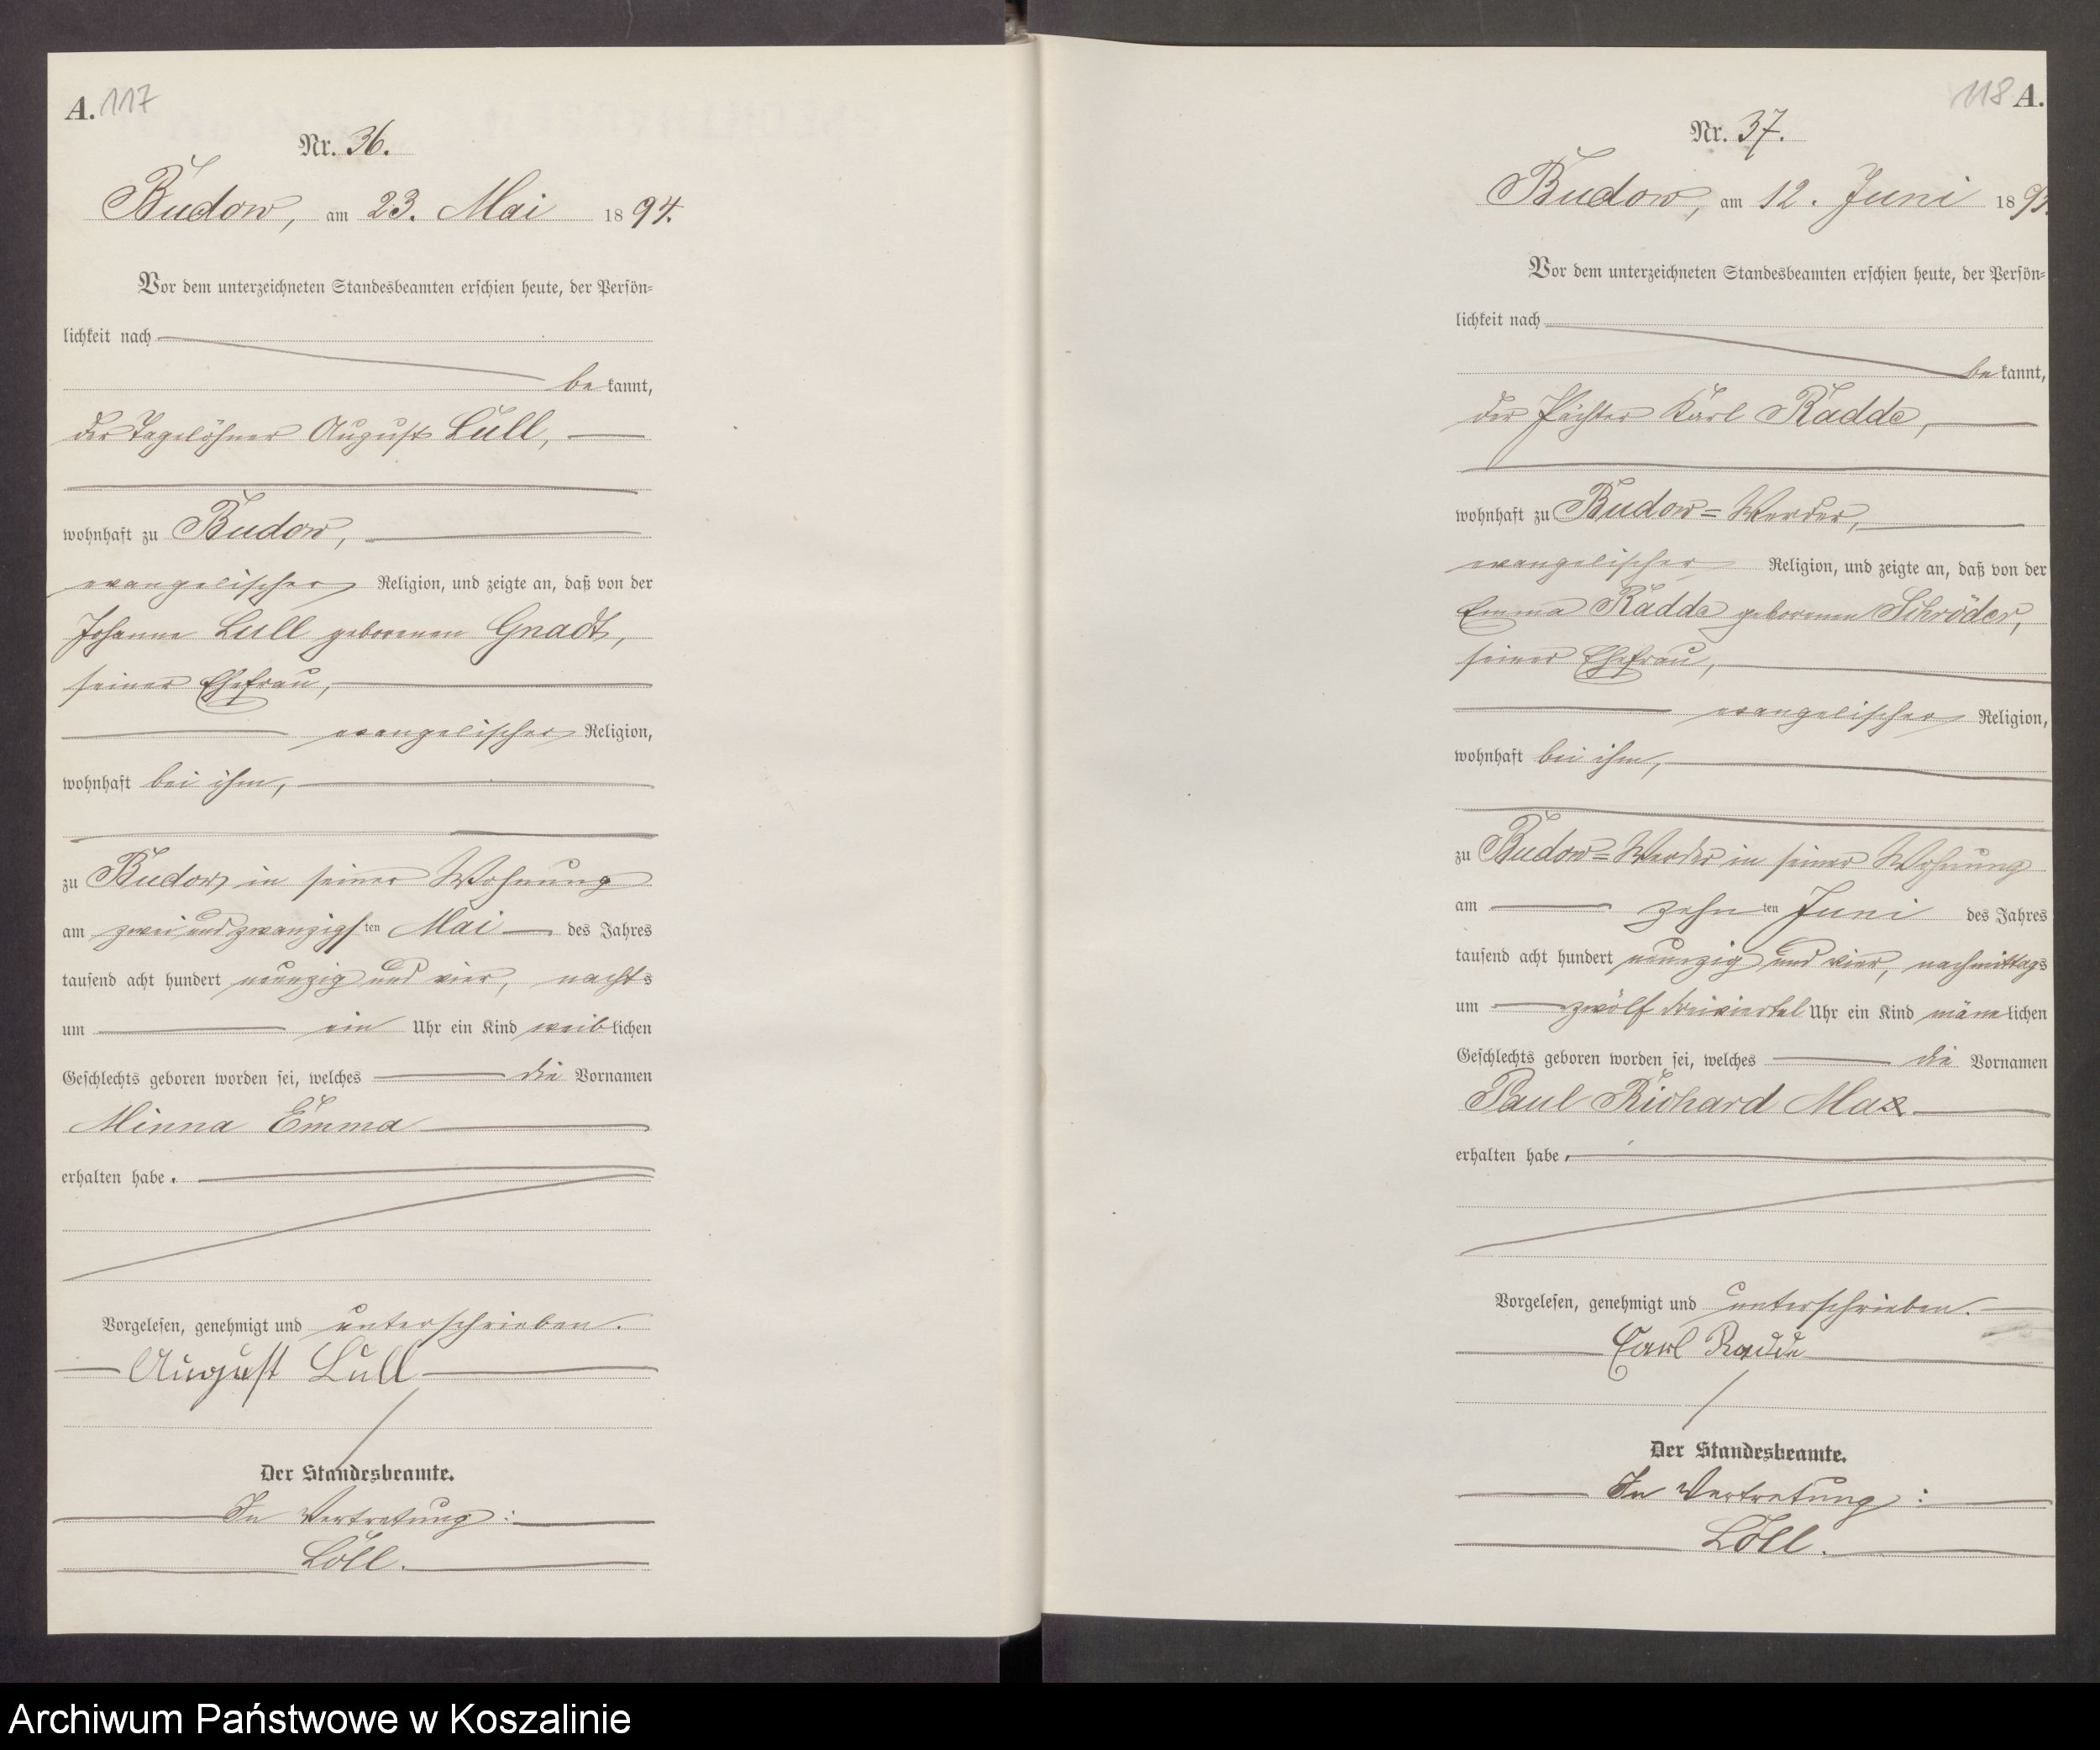 A. 117
Nr. 36.
Budow, am 23. Mai 1894.
Vor dem unterzeichneten Standesbeamten erschien heute, der Persön-
lichkeit nach
be kannt,
der Tagelöhner August Lüll,
wohnhaft zu Budow,
evangelischer Religion, und zeigte an, daß von der
Johanne Lüll geborenen Gnadt,
seiner Ehefrau,
evangelischer Religion,
wohnhaft bei ihm,
zu Budow in seiner Wohnung
am zwei und zwanzigsten Mai des Jahres
tausend acht hundert neunzig und vier, nachts
um ein Uhr ein Kind weiblichen
Geschlechts geboren worden sei, welches die Vornamen
Minna Emma
erhalten habe.
Vorgelesen, genehmigt und unterschrieben.
August Lüll
Der Standesbeamte.
In Vertretung:
Löll.
118 A.
Nr. 37.
Budow, am 12. Juni 189
Vor dem unterzeichneten Standesbeamten erschien heute, der Persön-
lichkeit nach
be kannt,
der Pächter Karl Radde,
wohnhaft zu Budow=Werder,
evangelischer Religion, und zeigte an, daß von der
Emma Radde geborenen Schröder,
seiner Ehefrau,
evangelischer Religion,
wohnhaft bei ihm,
zu Budow=Werder in seiner Wohnung
am zehnten Juni des Jahres
tausend acht hundert neunzig und vier, nachmittags
um zwölf dreiviertel Uhr ein Kind männlichen
Geschlechts geboren worden sei, welches die Vornamen
Paul Richard Max
erhalten habe.
Vorgelesen, genehmigt und unterschrieben.
Carl Radde
Der Standesbeamte.
In Vertretung:
Löll.
Archiwum Państwowe w Koszalinie